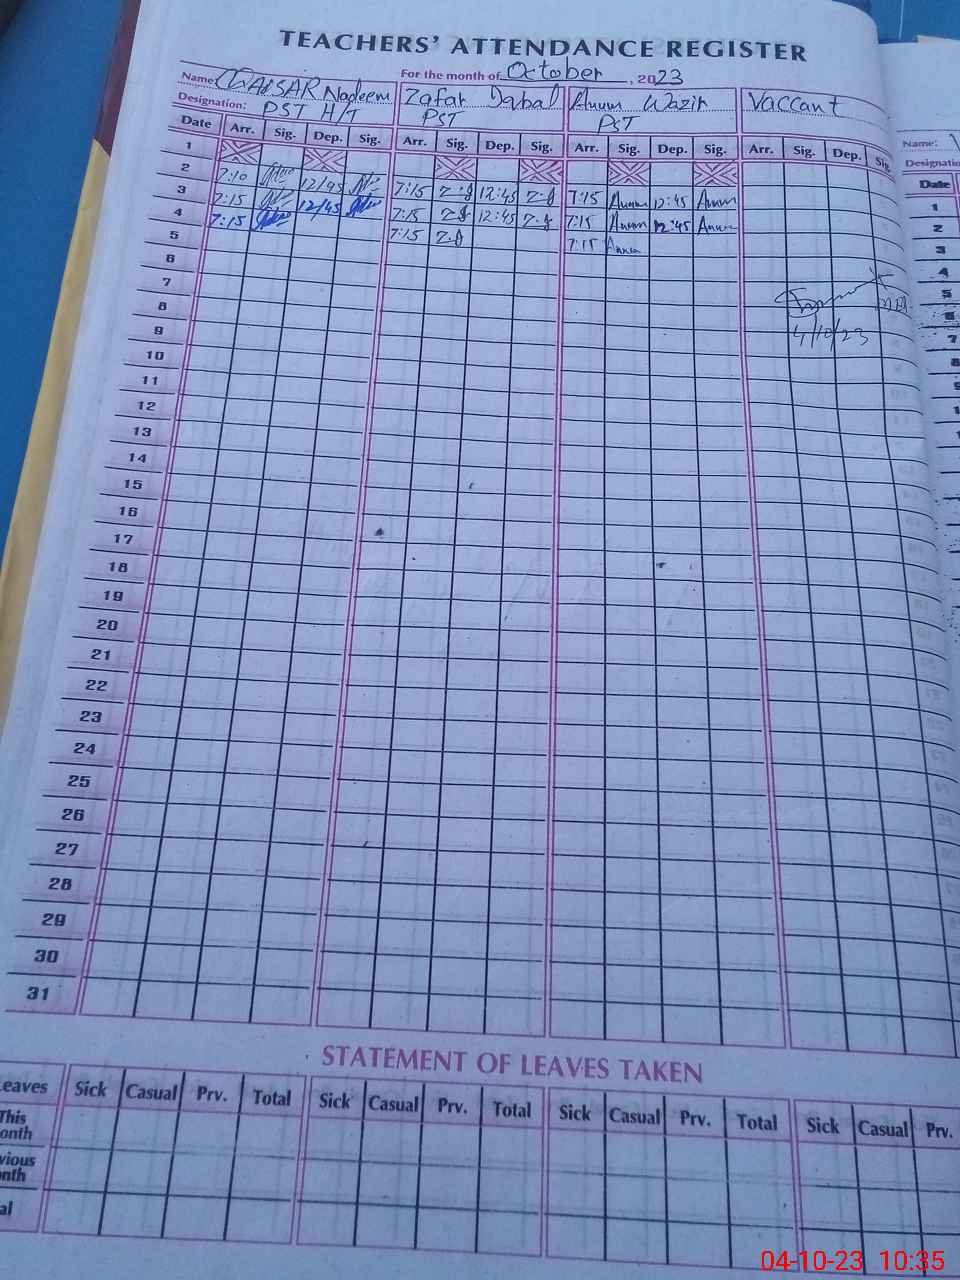 TEACHERS' ATTENDANCE REGISTER
For the month of October, 2023
Name: QAISAR Nadeem Zafar Iqbal Anum Wazir Vaccant
Designation: PST H/T PST PST
Date Arr. Sig. Dep. Sig. Arr. Sig. Dep. Sig. Arr. Sig. Dep. Sig. Arr. Sig. Dep. Sig.
1
2 7:10 12/45 7:15 Z.I 12:45 Z.I 7:15 Anum 12:45 Anum
3 7:15 12/45 7:15 Z.I 12:45 Z.I 7:15 Anum 12:45 Anum
4 7:15 7:15 Z.I 7:15 Anum
5
6
7
8
4/10/23
9
10
11
12
13
14
15
16
17
18
19
20
21
22
23
24
25
26
27
28
29
30
31
STATEMENT OF LEAVES TAKEN
eaves Sick Casual Prv. Total Sick Casual Prv. Total Sick Casual Prv. Total Sick Casual Prv.
This
onth
vious
nth
al
Name:
Designatio
Date
1
2
3
4
5
6
7
8
04-10-23 10:35